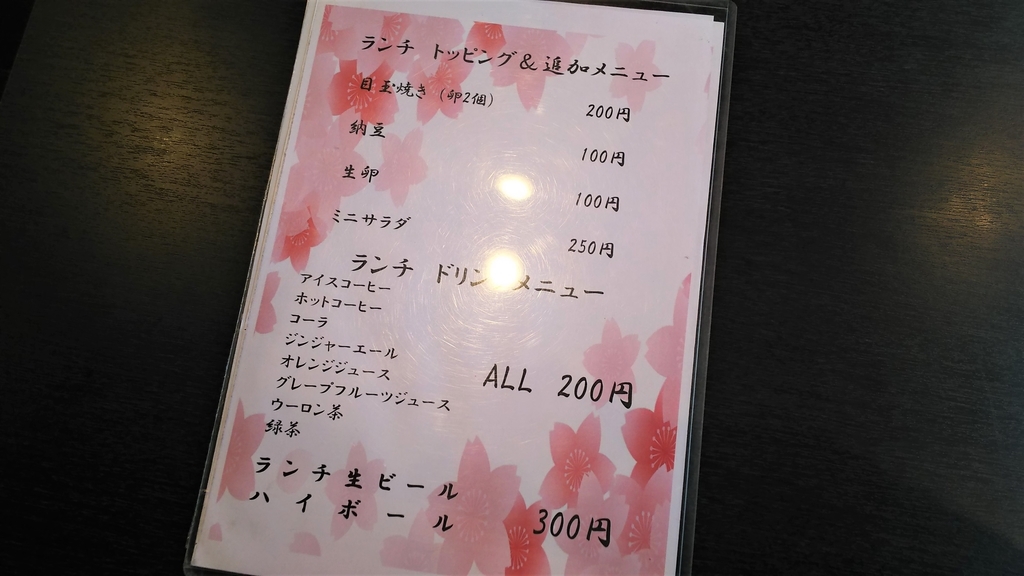 ランチ トッピング＆追加メニュー
目玉焼き（卵2個） 200円
納豆 100円
生卵 100円
ミニサラダ 250円
ランチ ドリン メニュー
アイスコーヒー
ホットコーヒー
コーラ
ジンジャーエール
オレンジジュース
グレープフルーツジュース
ウーロン茶
緑茶
ALL 200円
ランチ生ビール
ハイボール 300円